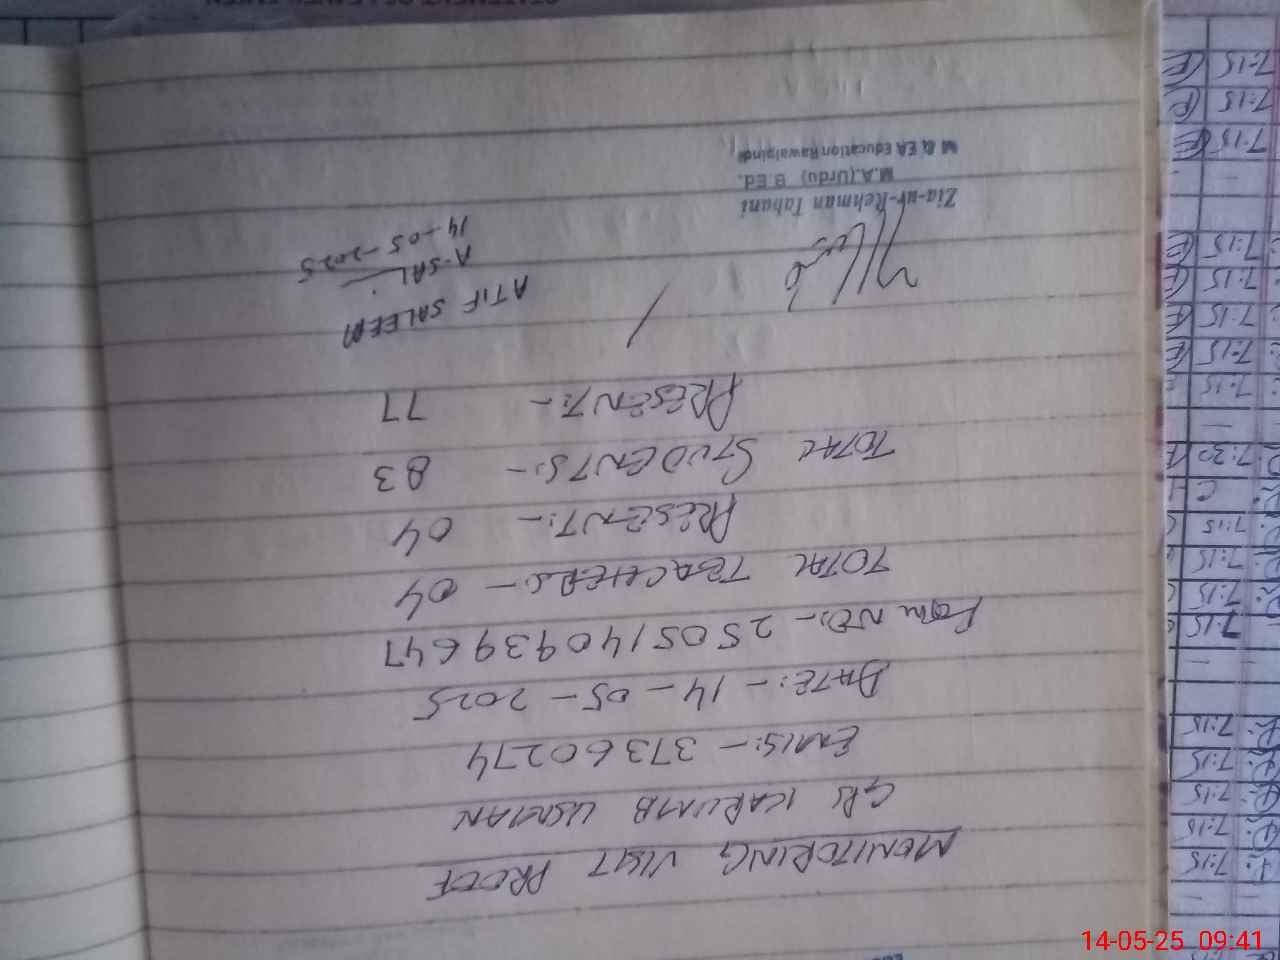 MONITORING VISIT PROOF
GPS KARUMB USMAN
EMIS:- 37360274
DATE:- 14-05-2025
Form NO:- 250514093964​7
TOTAL TEACHERS:- 04
PRESENT:- 04
TOTAL STUDENTS:- 83
PRESENT:- 77
ATIF SALEEM
A-SAL
14-05-2025
Zia-ur-Rehman Tabani
M.A.(Urdu) B.Ed.
M & EA Education Rawalpindi
7:15
7:15
7:15
7:15
7:15
7:15
7:15
7:15
7:15
7:15
7:15
7:30
C
7:15
7:15
7:15
7:15
7:15
7:15
7:15
14-05-25 09:41